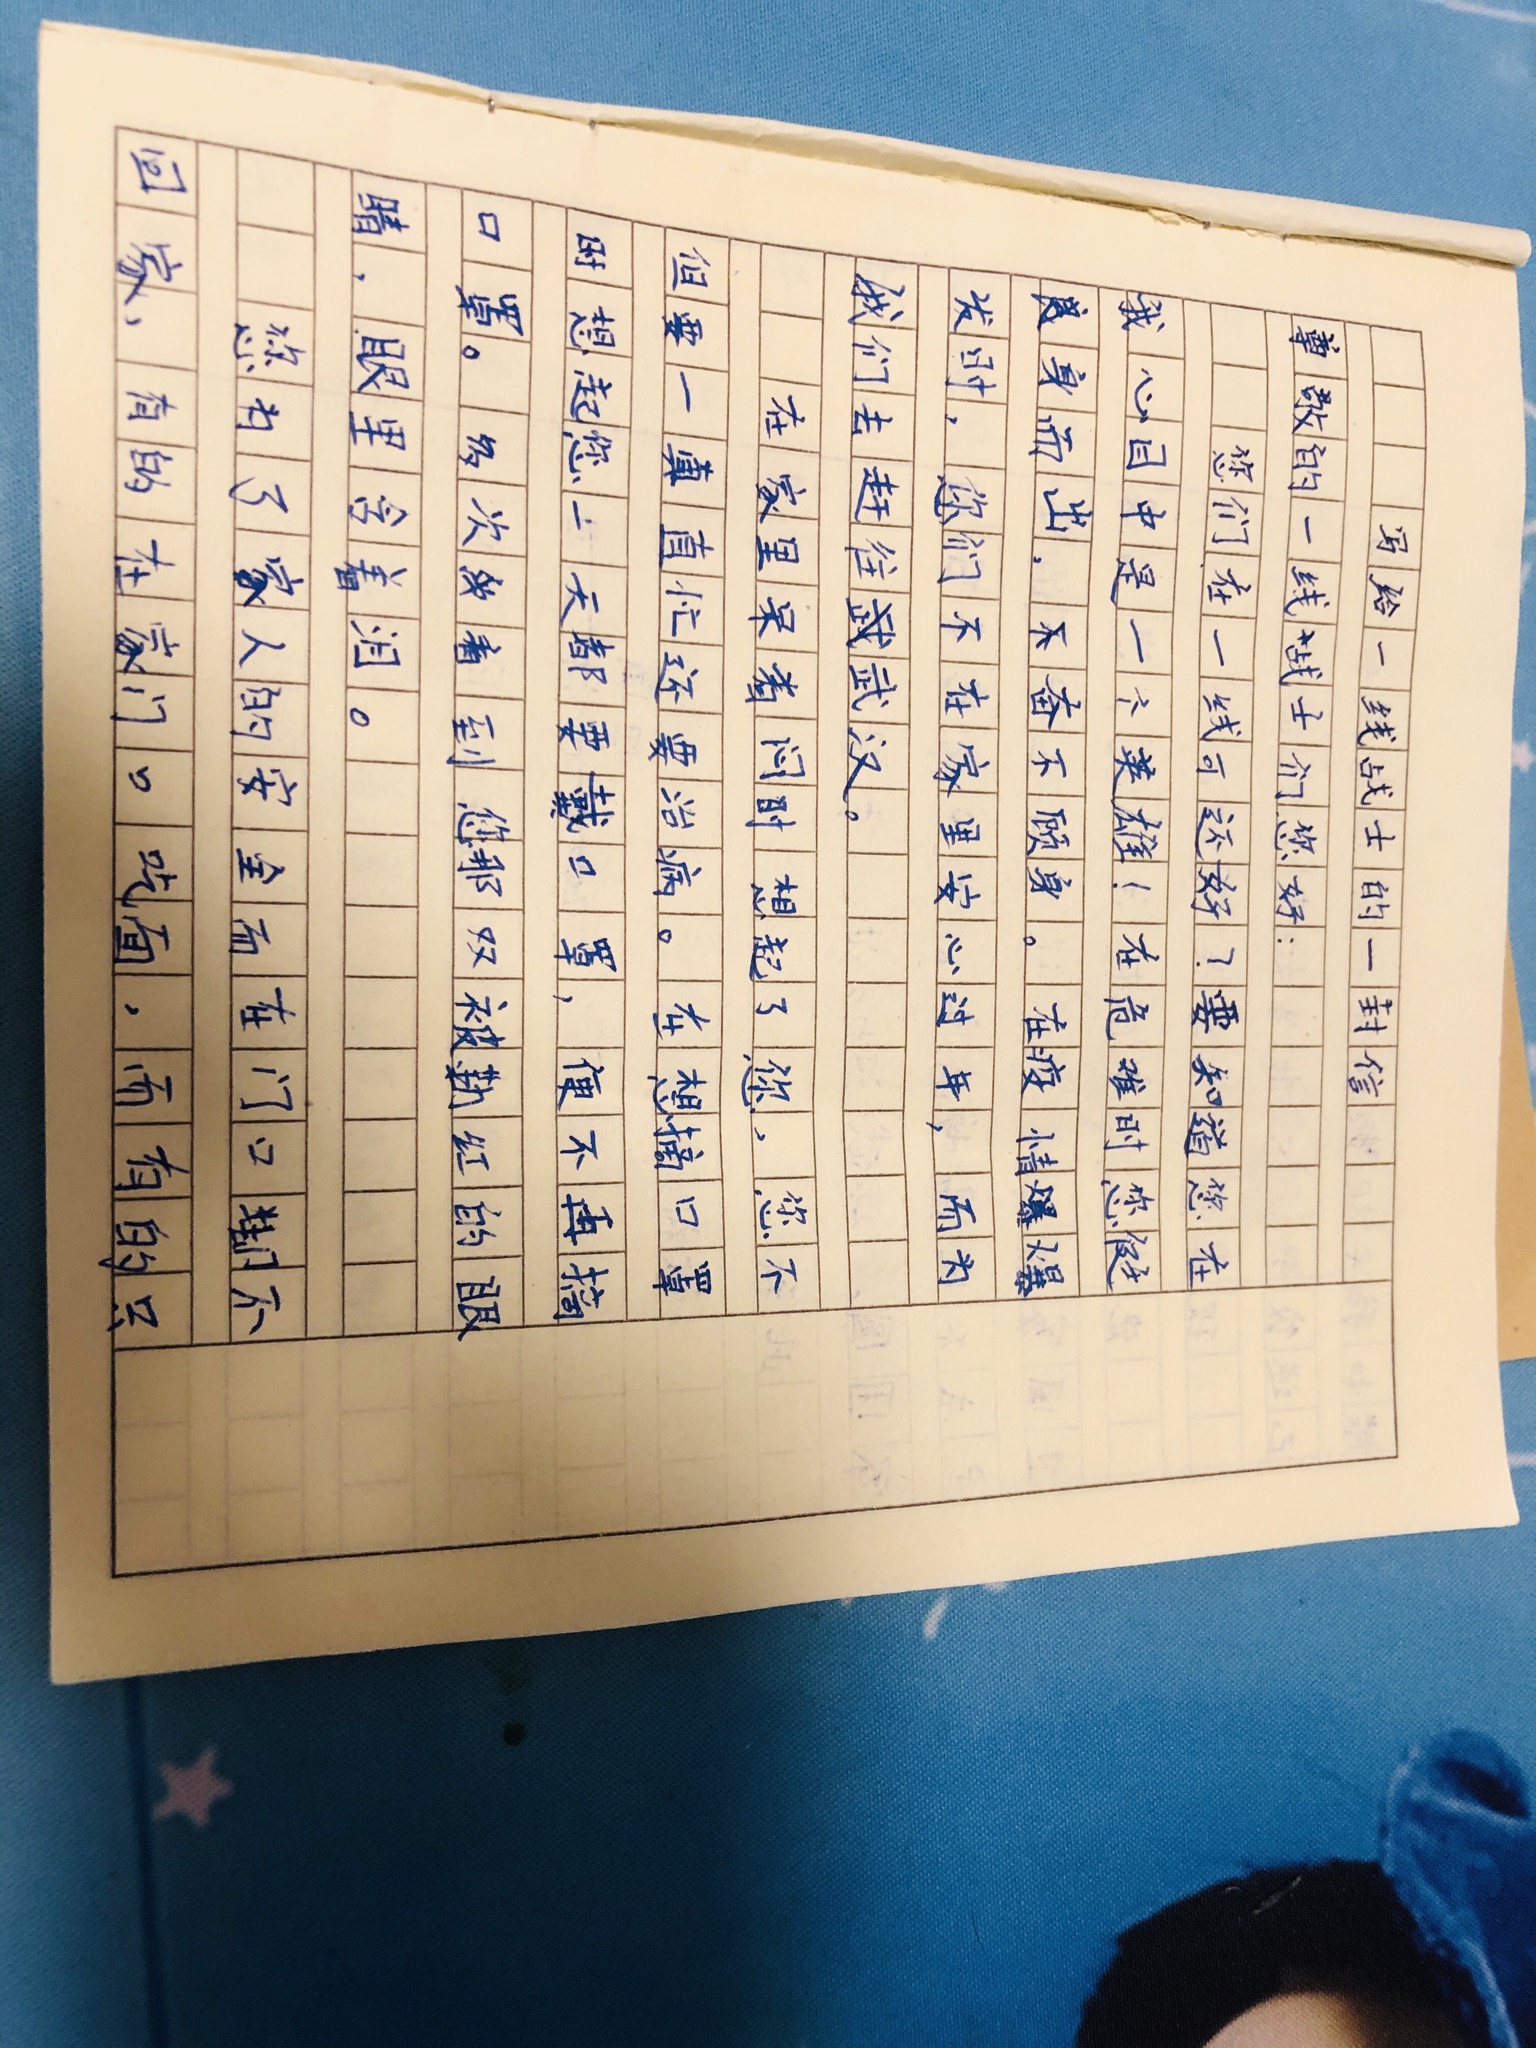 写给一线战士的一封信
尊敬的一线战士们您好:
您们在一线可还好?要知道您在
我心目中是一个英雄!在危难时您挺
身而出,不奋不顾身。在疫情爆爆
发时,您们不在家里安心过年,而为
我们去赶往武武汉。
在家里呆着闷时想起了您、您不
但要一直忙还要治病。在想摘口罩
时想起您一天都要戴口罩,便不再摘
口罩。多次我看到您那双被勒红的眼
睛,眼里含着泪。
您为了家人的安全而在门口都不
回家、有的在家门口吃面,而有的只